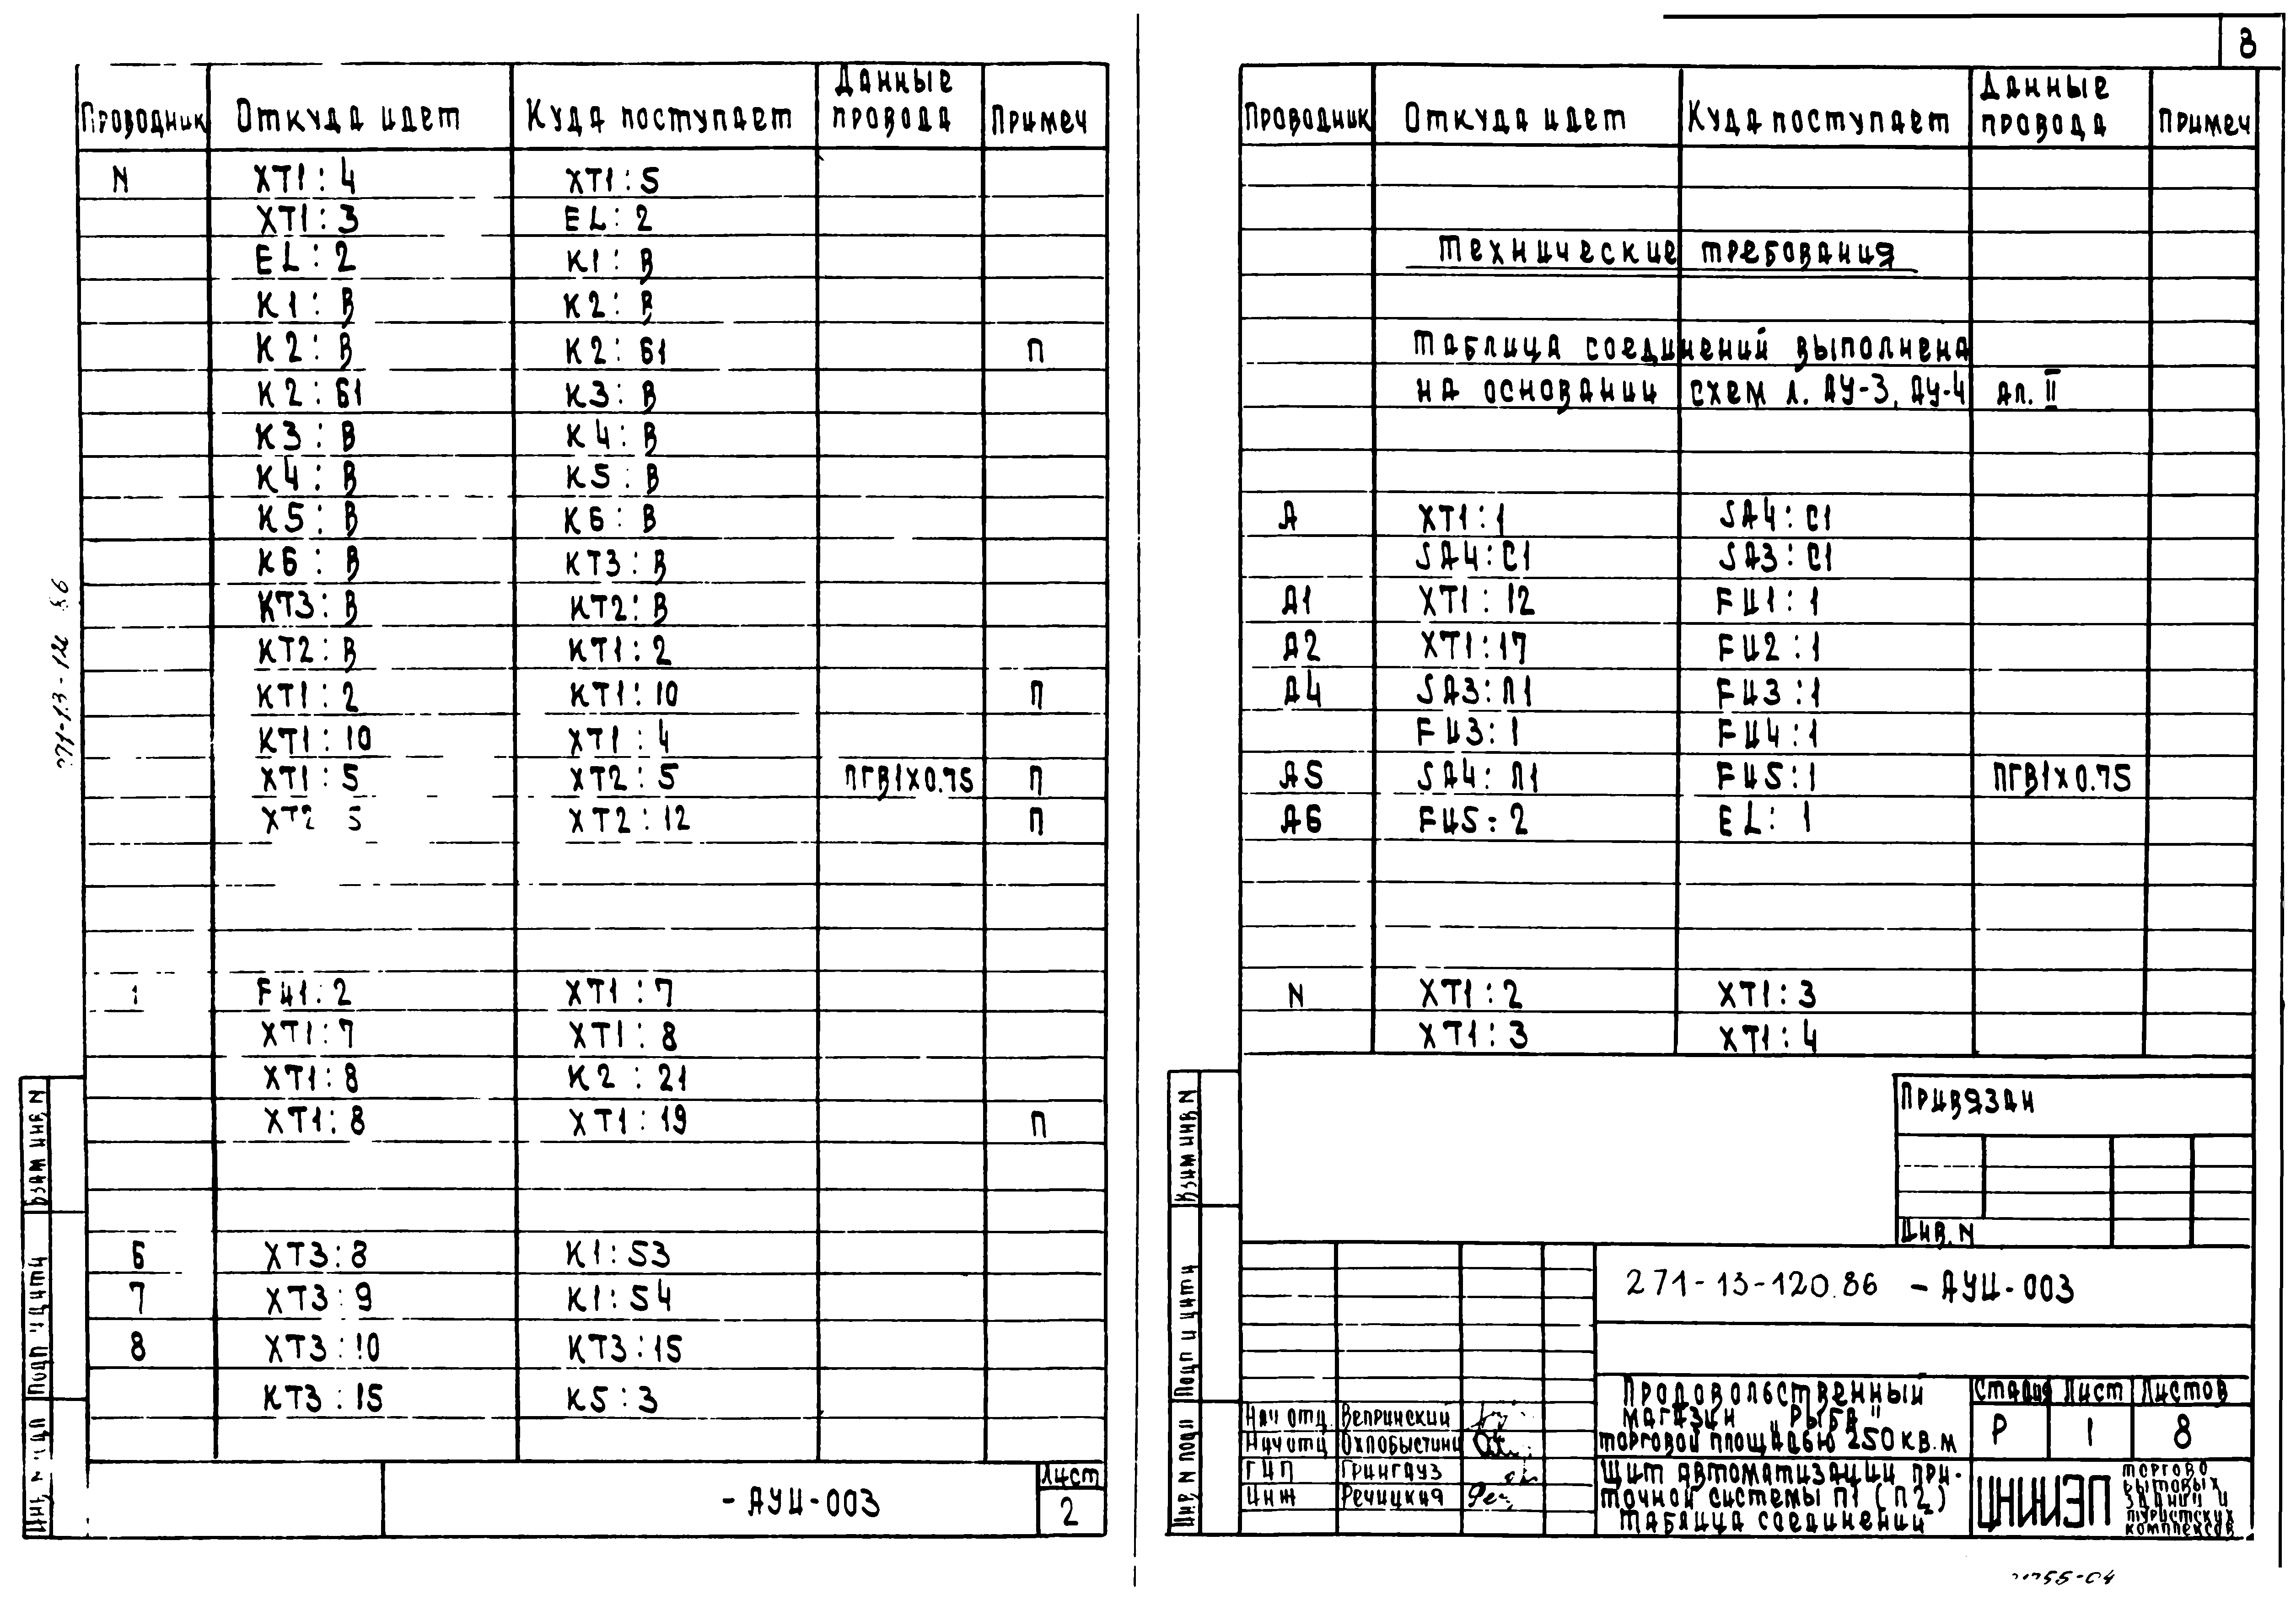 Проводник Откуда идет Куда поступает Данные провода Примеч
N XT1:4 XT1:5
XT1:3 EL:2
EL:2 K1:В
K1:В K2:В
K2:В K2:Б1 П
K2:Б1 K3:В
K3:В K4:В
K4:В K5:В
K5:В K6:В
K6:В KT3:В
KT3:В KT2:В
KT2:В KT1:2
KT1:2 KT1:10 П
KT1:10 XT1:4
XT1:5 XT2:5 ПГВ1х0.75 П
XT2 5 XT2:12 П
1 FU1:2 XT1:7
XT1:7 XT1:8
XT1:8 K2:21
XT1:8 XT1:19 П
6 XT3:8 K1:53
7 XT3:9 K1:54
8 XT3:10 KT3:15
KT3:15 K5:3
Взам инв. N
Подп и дата
Инв. N подл
-АУЦ-003
Лист
2
8
Проводник Откуда идет Куда поступает Данные провода Примеч
Технические требования
Таблица соединений выполнена
на основании схем л. АУ-3, АУ-4 Ал. II
A XT1:1 SA4:C1
SA4:C1 SA3:C1
A1 XT1:12 FU1:1
A2 XT1:17 FU2:1
A4 SA3:Л1 FU3:1
FU3:1 FU4:1
A5 SA4:Л1 FU5:1 ПГВ1х0.75
A6 FU5:2 EL:1
N XT1:2 XT1:3
XT1:3 XT1:4
Взам инв N
Подп и дата
Инв. N подл
Привязан
Инв. N
271-13-120.86 -АУЦ-003
Продовольственный
магазин „Рыба"
торговой площадью 250 кв.м
Стадия Лист Листов
Р 1 8
Нач отд Вепринский
Нач отд
ГИП Грингауз
Инж Речицкая
Щит автоматизации при-
точной системы П1 (П2)
Таблица соединений
ЦНИИЭП
торгово
бытовых
зданий и
туристских
комплексов
55-04